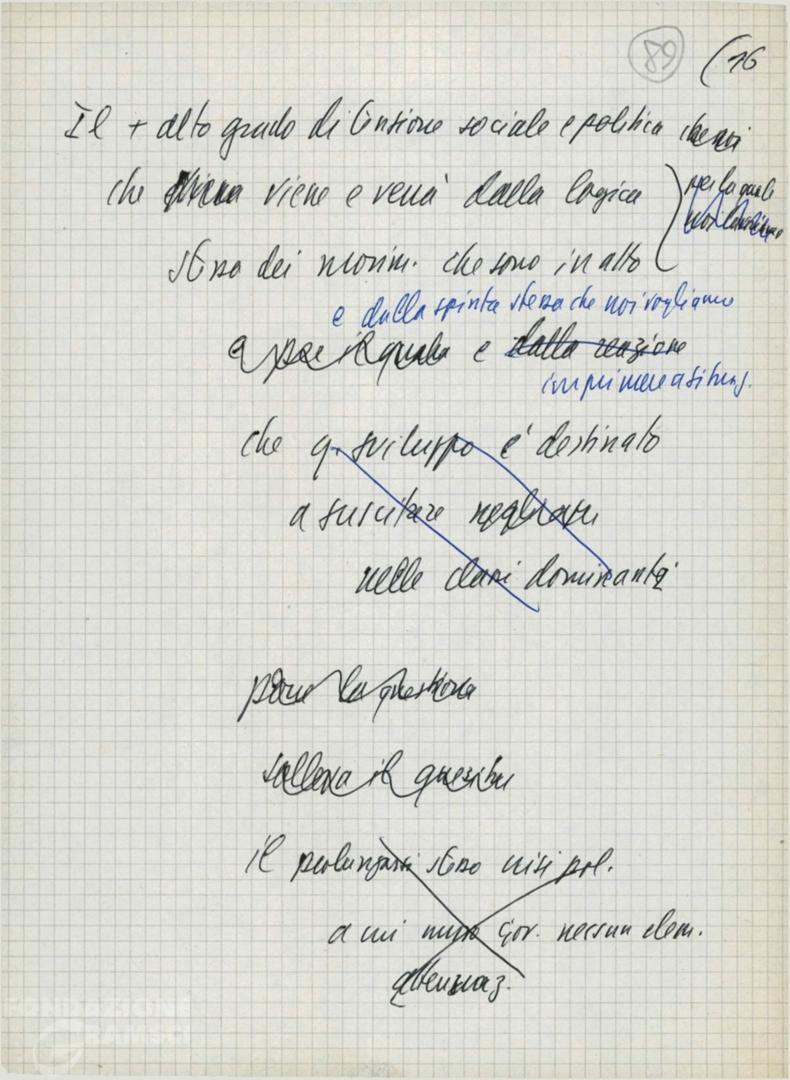 89 (16
Il + alto grado di tensione sociale e politica
che viene e verrà dalla logica
per la quale
stessa dei movim. che sono in atto
e dalla spinta stessa che noi vogliamo
e dalla reazione
imprimere a situaz.
che q. sviluppo è destinato
a suscitare
nelle classi dominanti
pone la questione
solleva il quesito
il prolungarsi stesso crisi pol.
a cui nuovo gov. nessun elem.
attenuaz.
FONDAZIONE
GRAMSCI